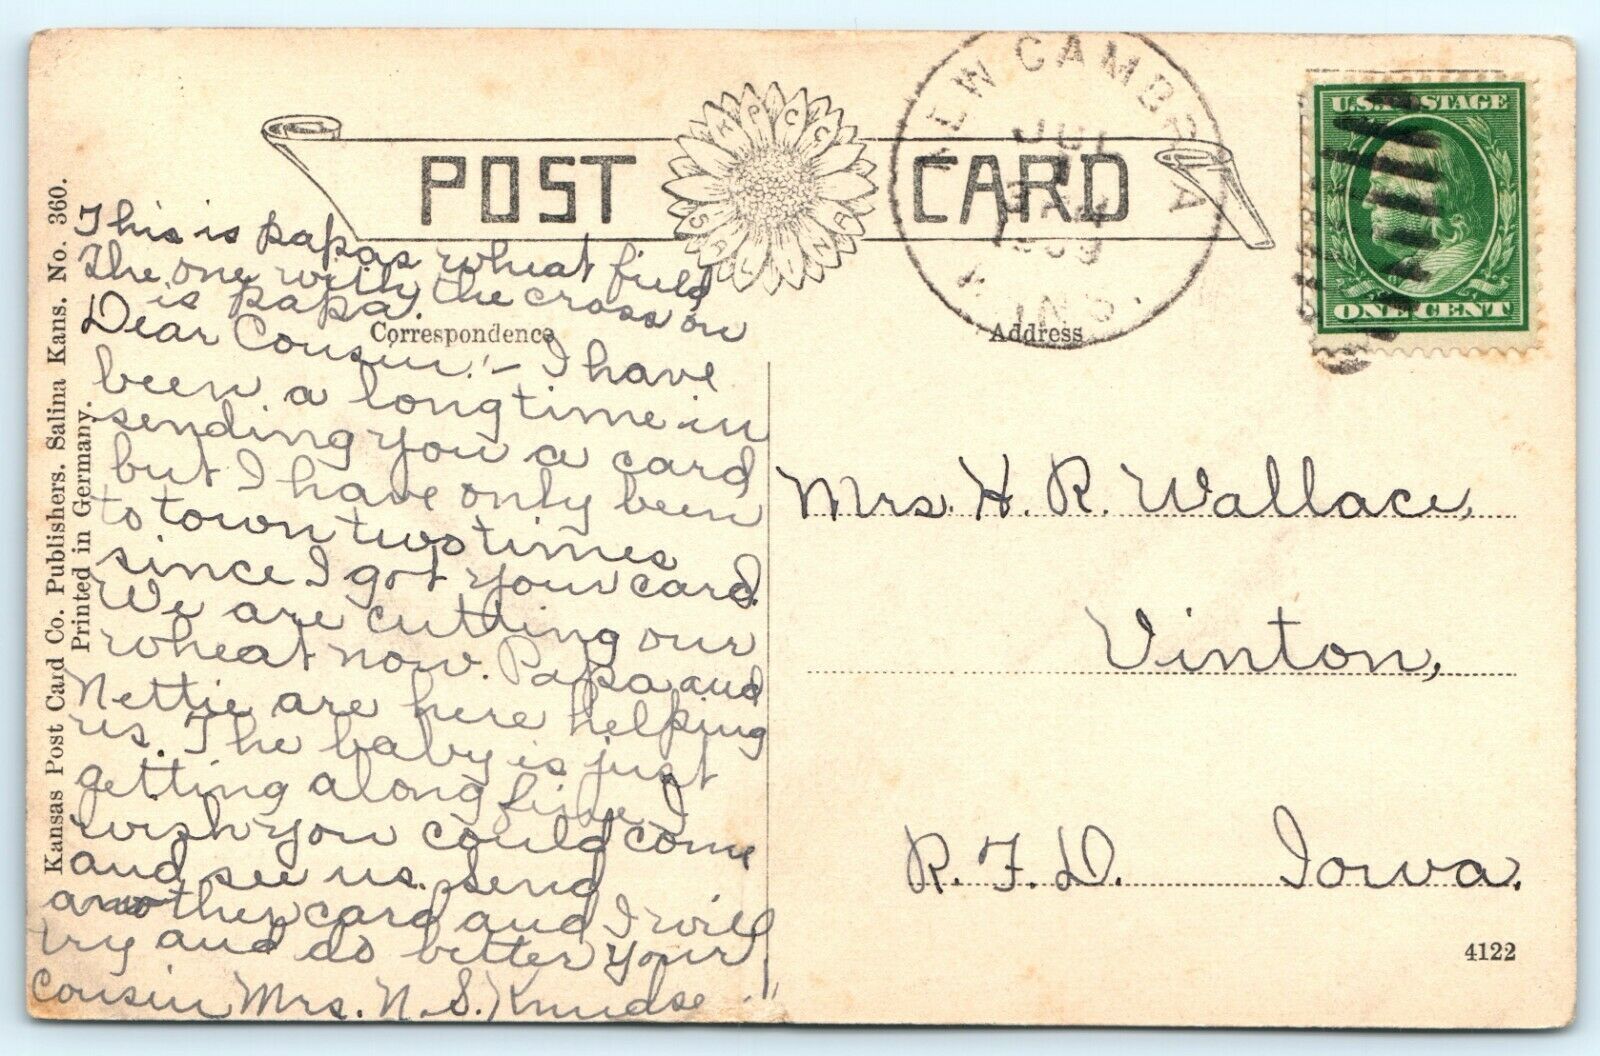 POST CARD
K P C C
SALINA
NEW CAMBRIA
JUL
1909
KANS.
U.S. POSTAGE
ONE CENT
This is papas wheat field
The one with the cross on
is papa.
Correspondence
Address
Dear Cousin:- I have
been a long time in
sending you a card
but I have only been
to town two times
since I got your card.
We are cutting our
wheat now. Papa and
Nettie are here helping
us. The baby is just
getting along fine I
wish you could come
and see us. Send
another card and I will
try and do better your
cousin Mrs. N. S. Knudse
Mrs. H. R. Wallace,
Vinton,
R. F. D. Iowa.
4122
Kansas Post Card Co. Publishers. Salina Kans. No. 360.
Printed in Germany.